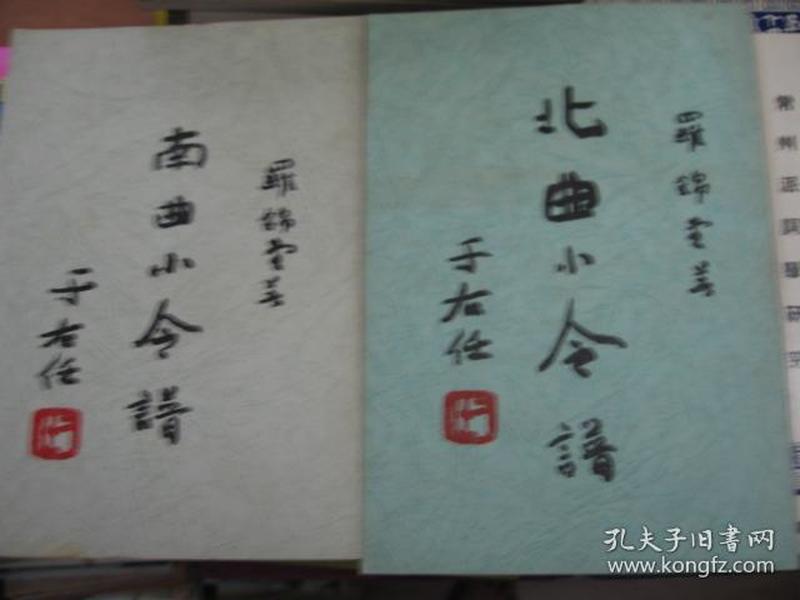 羅錦堂著
南曲小令譜
于右任
羅錦堂著
北曲小令譜
于右任
常州派詞學研究
孔夫子旧書网
www.kongfz.com